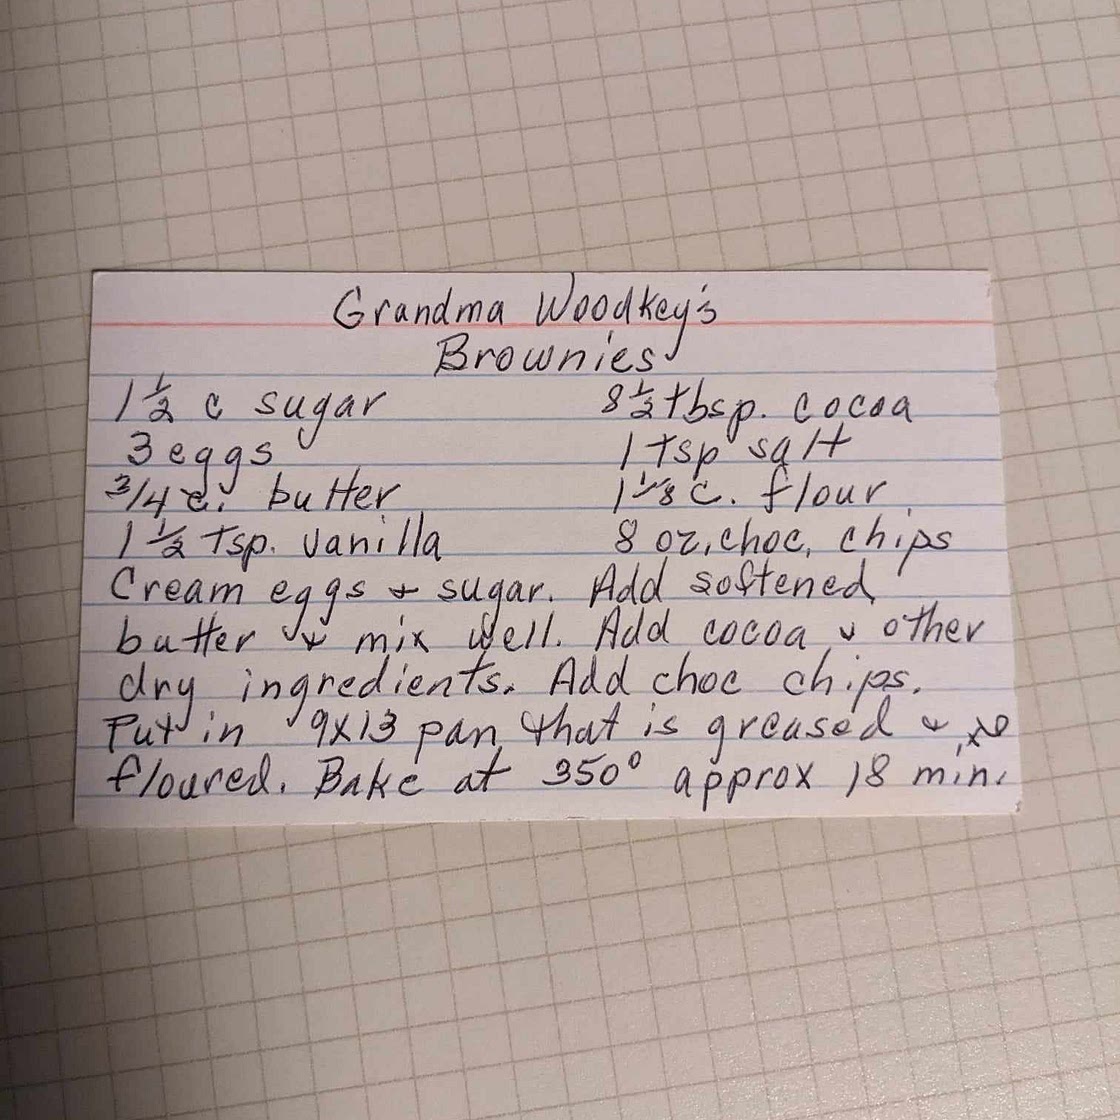 Grandma Woodkey's
Brownies
1 1/2 c sugar 8 1/2 tbsp. cocoa
3 eggs 1 tsp salt
3/4 c. butter 1 1/8 c. flour
1 1/2 tsp. vanilla 8 oz. choc. chips
Cream eggs + sugar. Add softened
butter + mix well. Add cocoa + other
dry ingredients. Add choc chips.
Put in 9x13 pan that is greased +
floured. Bake at 350° approx 18 min.